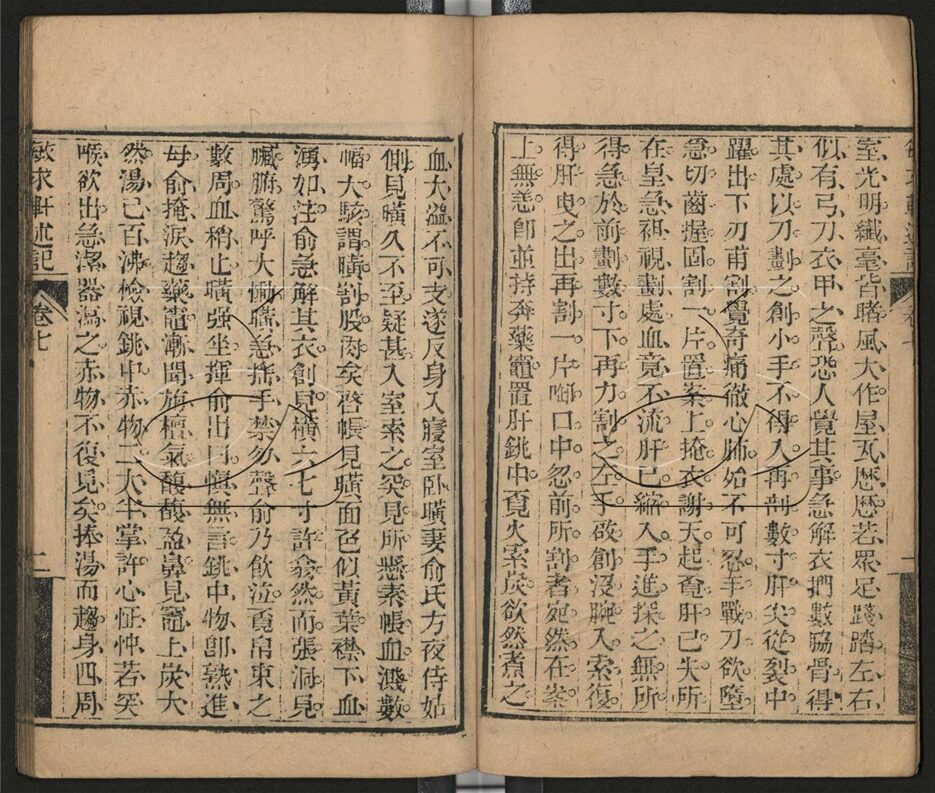 室光明纖毫皆睹風大作屋瓦歷歷若眾足踐踏左右
似有弓刀衣甲之聲恐人覺其事急解衣捫數脇骨得
其處以刀劃之創小手不得入再剖數寸肝尖從裂中
躍出下刃甫割覺奇痛徹心肺始不可忍手戰刀欲墮
急切齒握固割一片置案上掩衣謝天起覔肝已失所
在皇急袒視劃處血竟不流肝已縮入手進探之無所
得急於前劃數寸下再力割之左手砍創沒腕入索復
得肝曳之出再割一片啣口中忽前所割者宛然在案
上無恙卽並持奔藥竈置肝銚中覔火索炭欲然煮之
血大溢不可支遂反身入寢室卧曠妻俞氏方夜侍姑
側見曠久不至疑甚入室索之突見所懸素帳血濺數
幅大駭謂曠割股肉矣啓帳見曠面色似黃葉襟下血
湧如注俞急解其衣創見橫六七寸許翕然而張洞見
臟腑驚呼大慟曠急搖手禁勿聲俞乃飲泣覔帛束之
數周血稍止曠强坐揮俞出口愼無言銚中物卽熟進
母俞掩淚趨藥竈漸聞旃檀氣馥馥盈鼻見竈上炭大
然湯已百沸儉視銚中赤物二大半掌許心怔忡若突
喉欲出急潔器瀉之赤物不復見矣捧湯而趨身四周
敏求軒述記
卷七
二